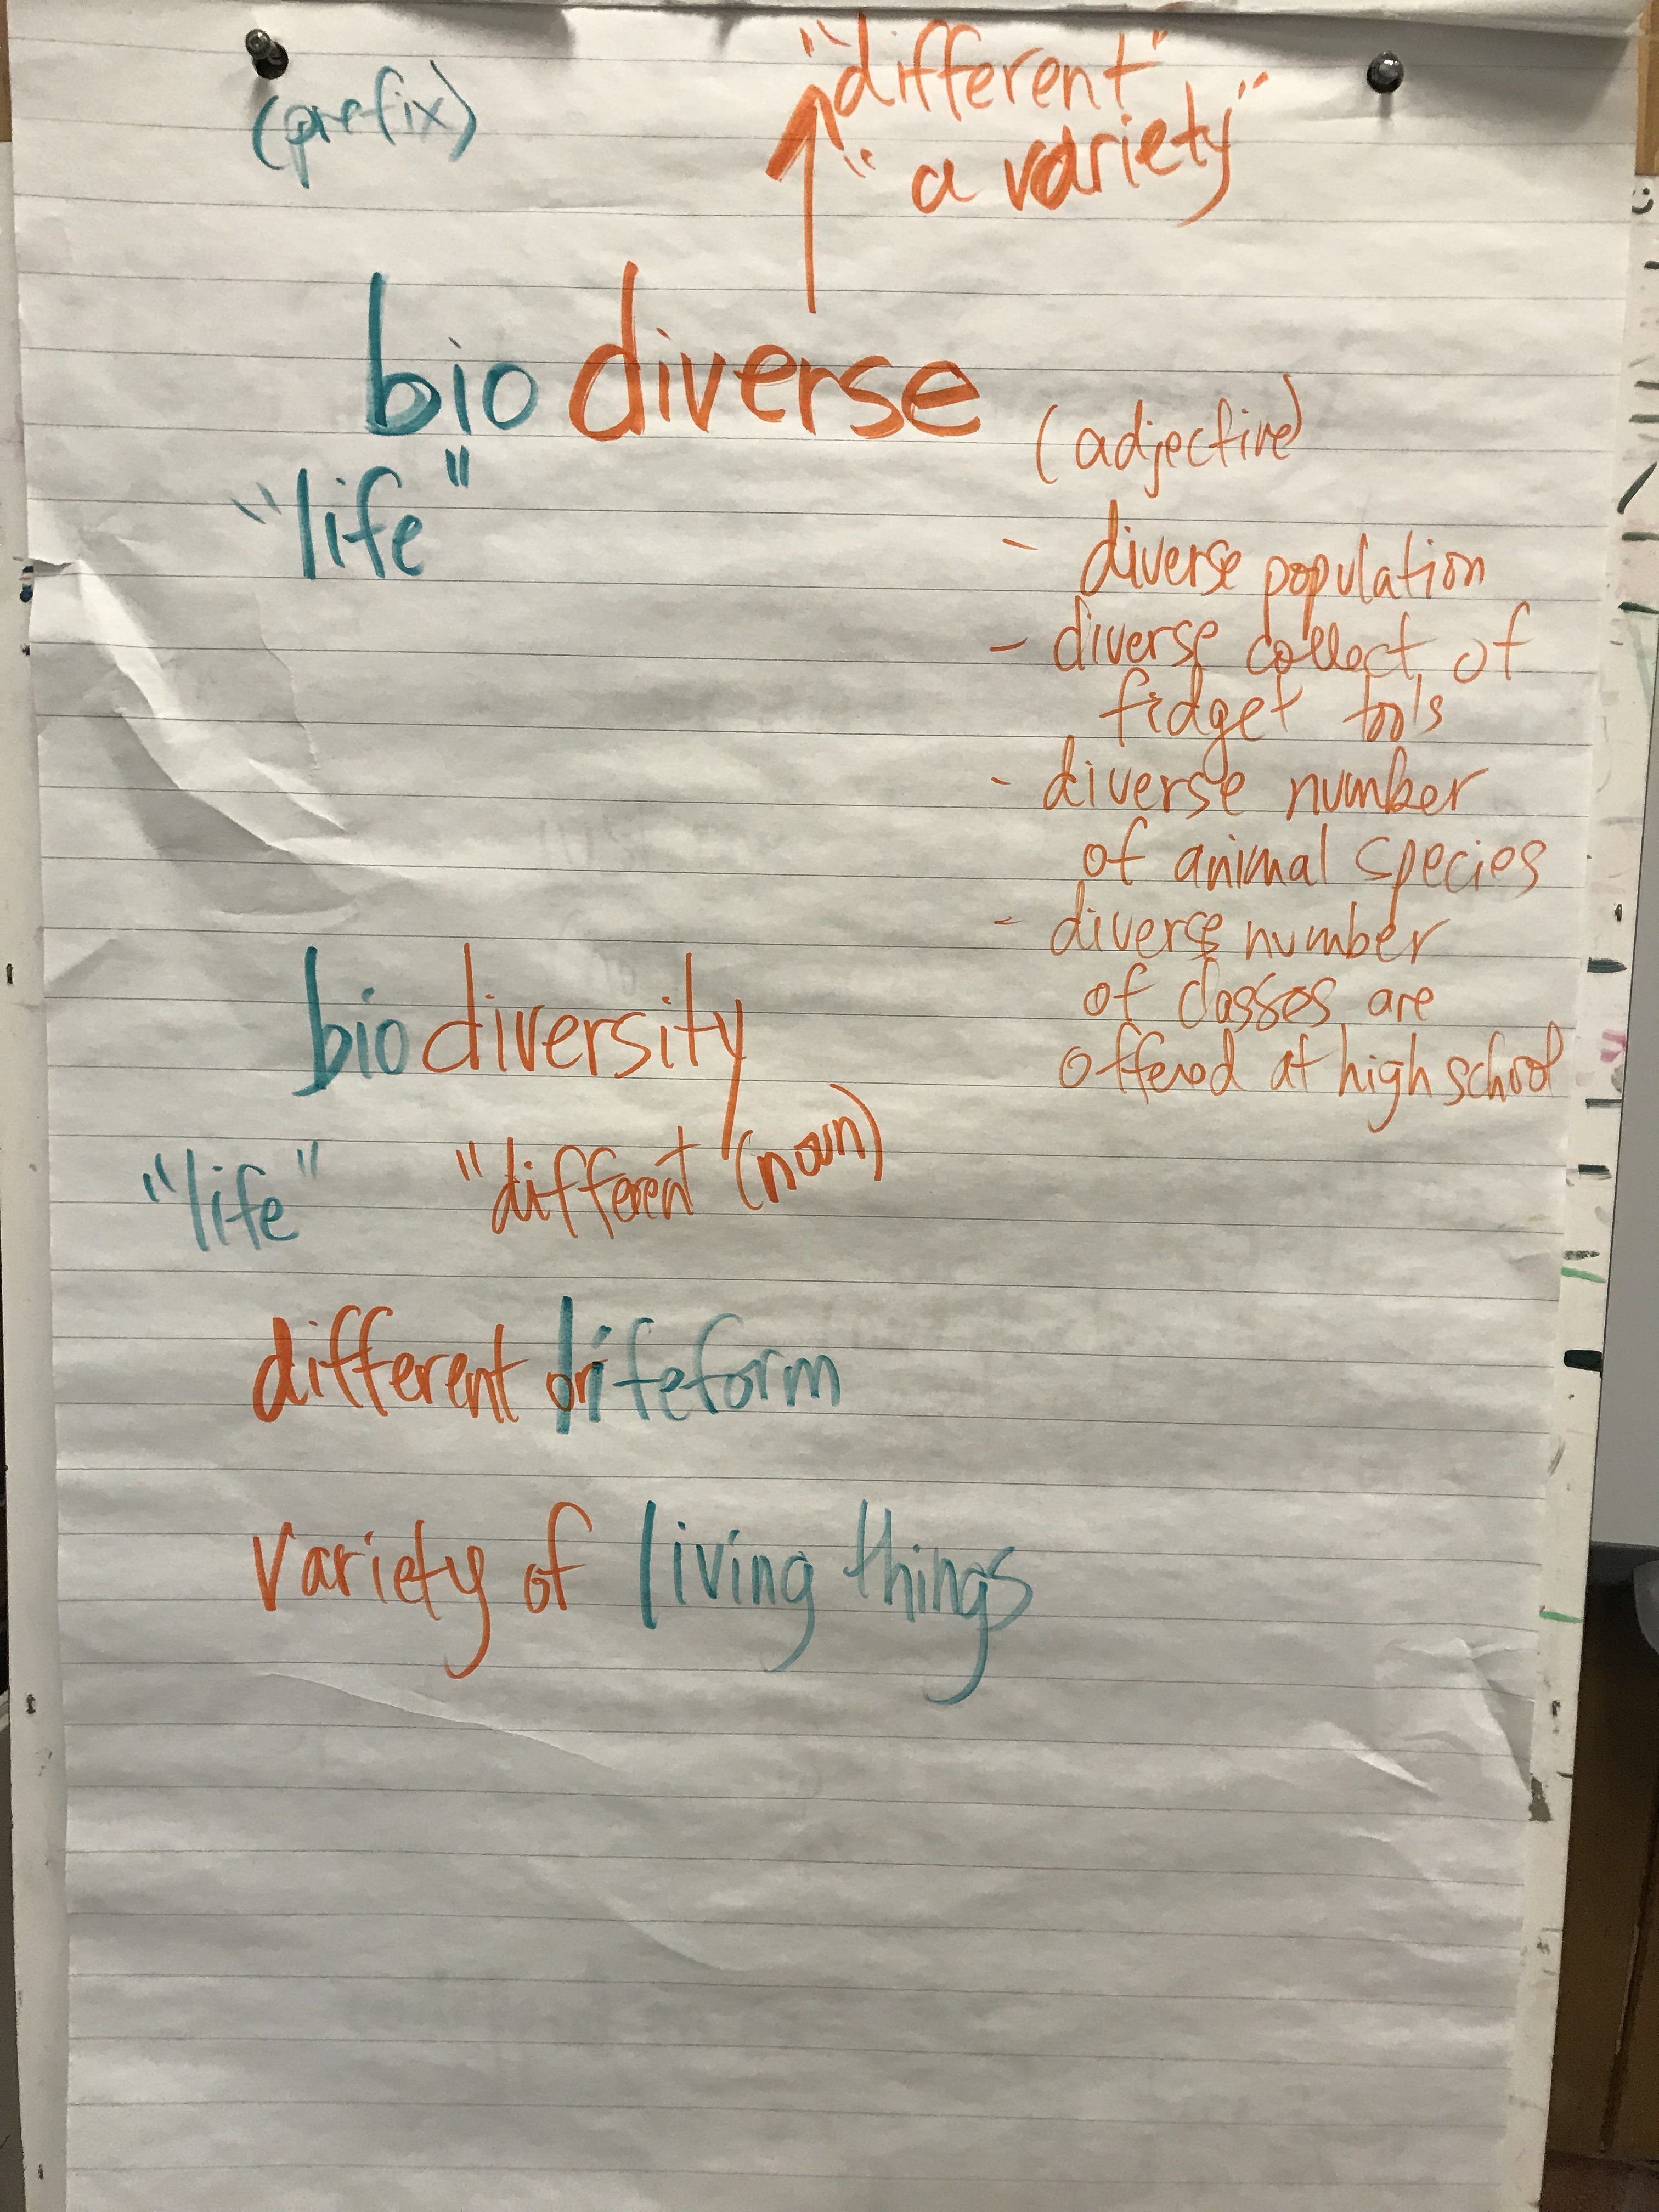 (prefix)
"different"
"a variety"
bio diverse
(adjective)
"life"
- diverse population
- diverse collect of
fidget tools
- diverse number
of animal species
- diverse number
of classes are
offered at high school
biodiversity
"life" "different (noun)
different lifeform
variety of living things